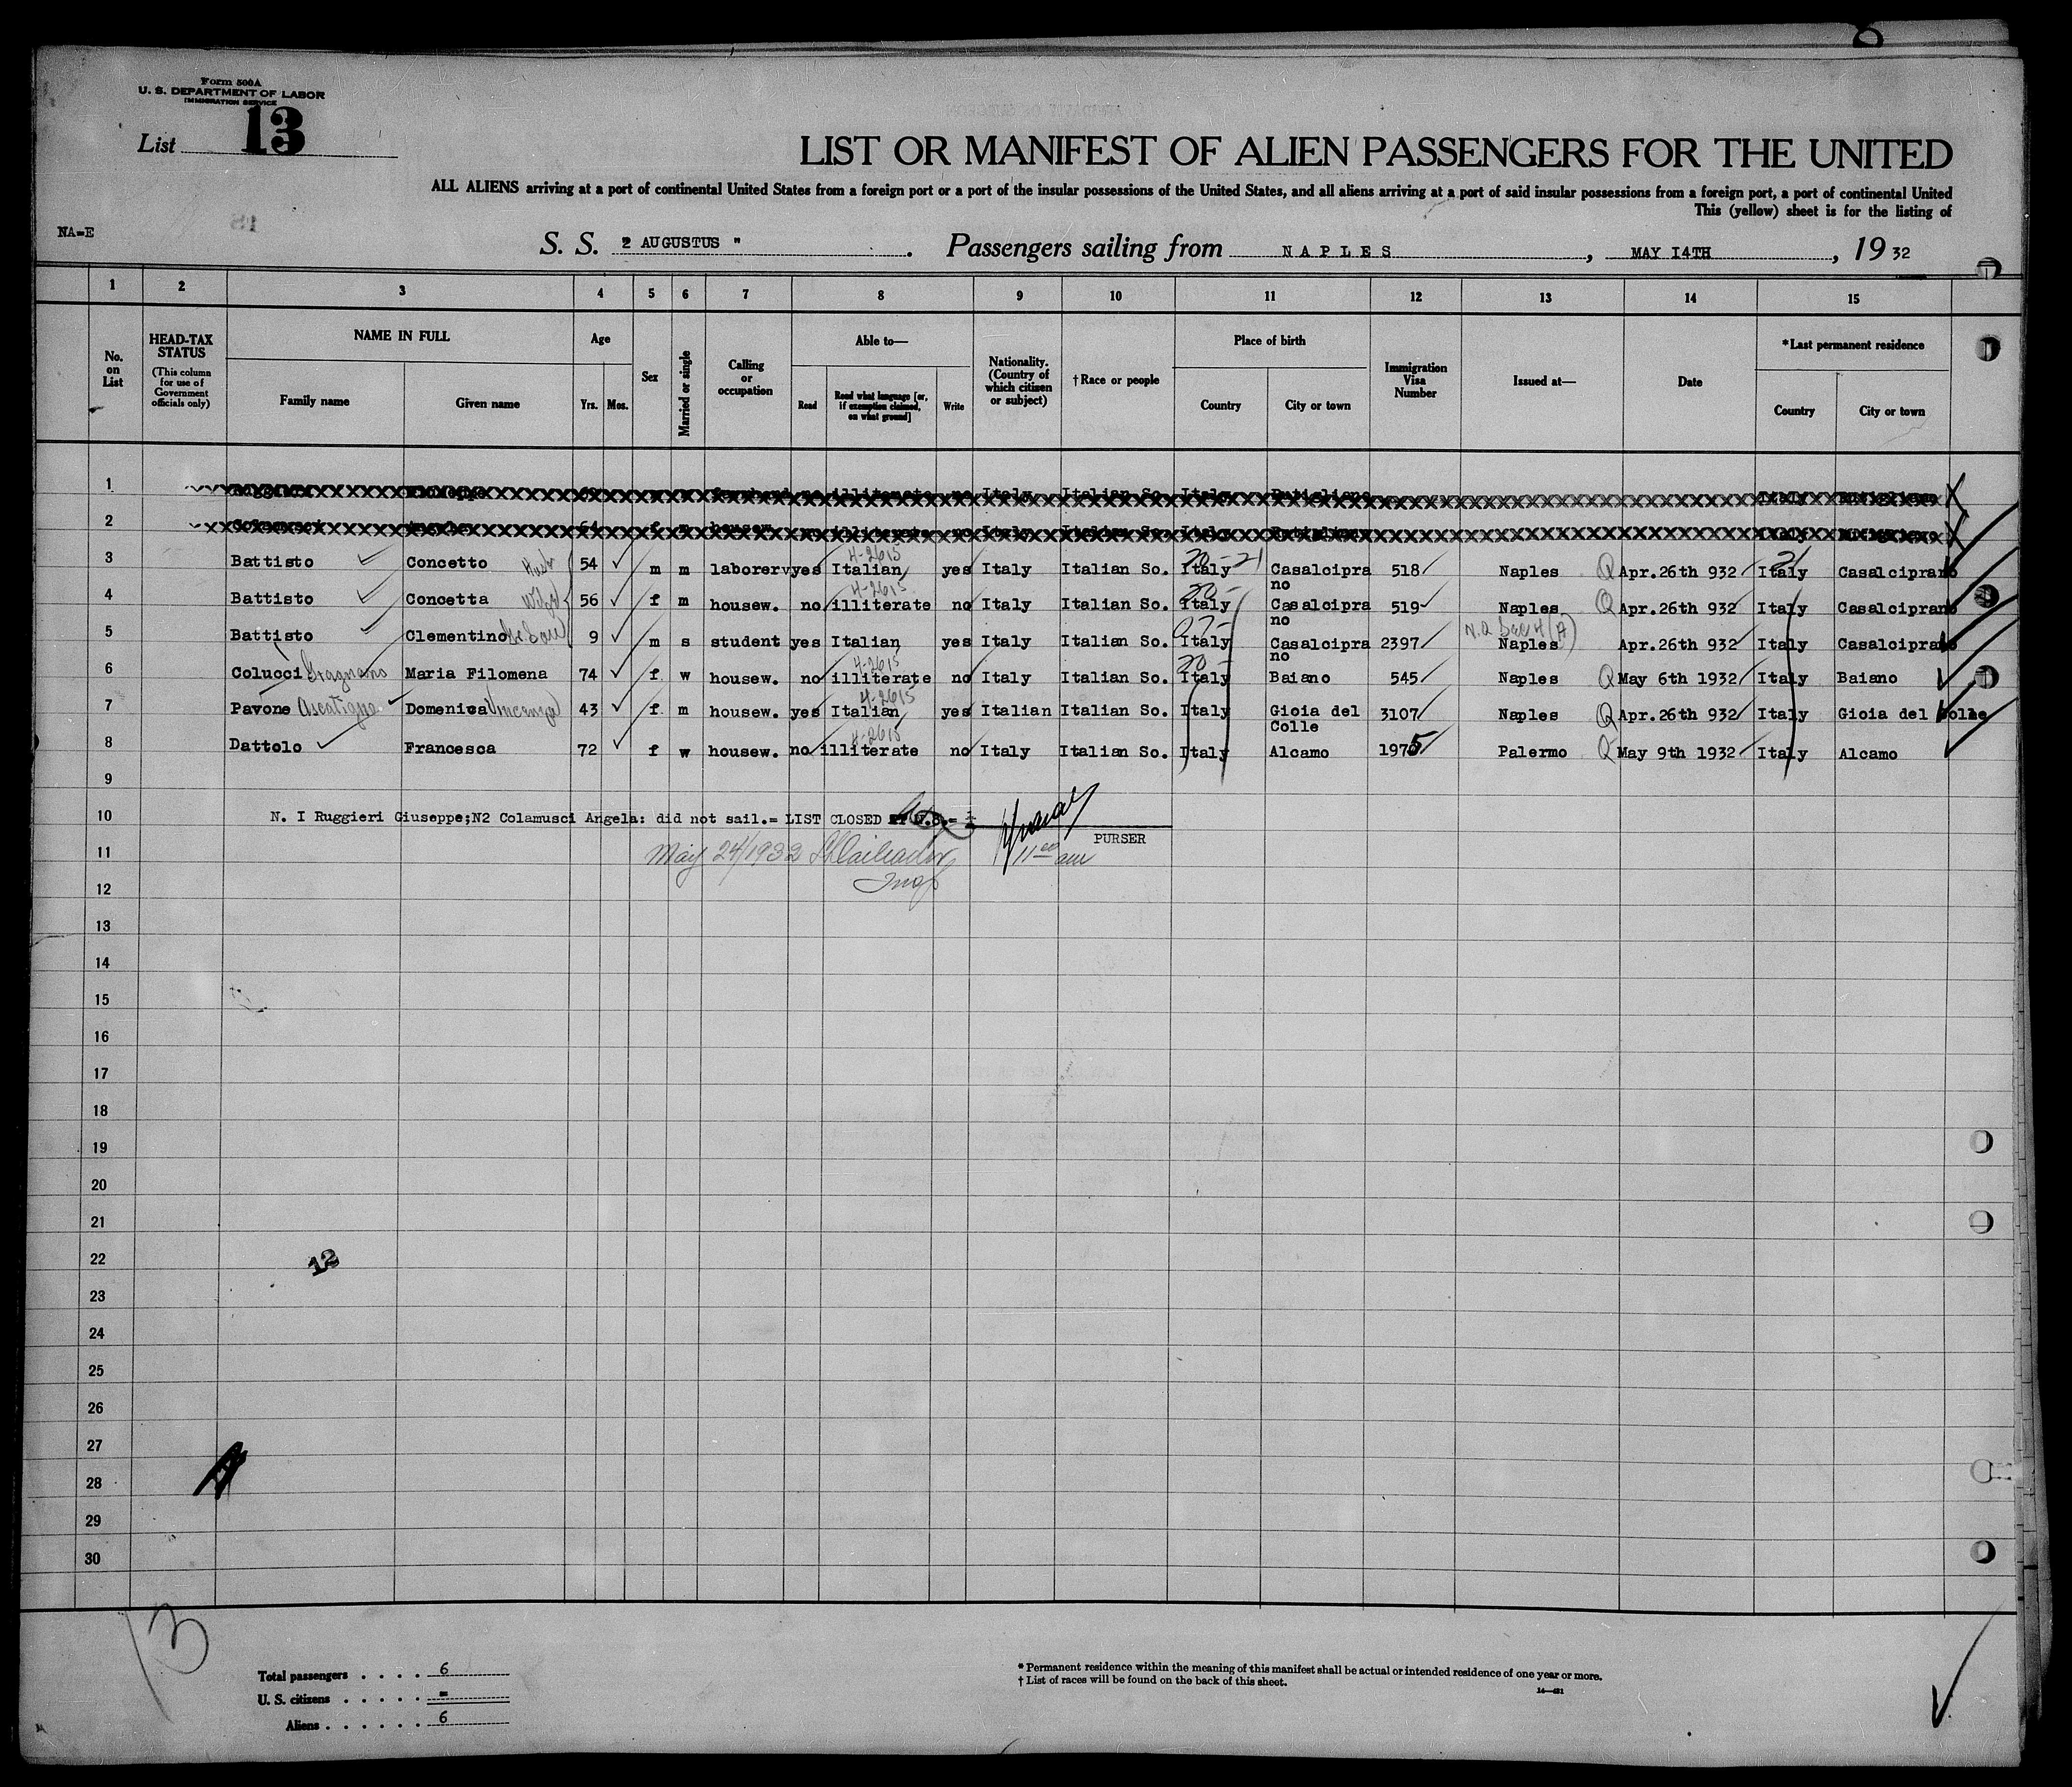 Form 500A
U. S. DEPARTMENT OF LABOR
IMMIGRATION SERVICE
List 13
LIST OR MANIFEST OF ALIEN PASSENGERS FOR THE UNITED
ALL ALIENS arriving at a port of continental United States from a foreign port or a port of the insular possessions of the United States, and all aliens arriving at a port of said insular possessions from a foreign port, a port of continental United
This (yellow) sheet is for the listing of
NA=E
S. S. 2 AUGUSTUS " . Passengers sailing from NAPLES , MAY I4TH , 19 32
1 2 3 4 5 6 7 8 9 10 11 12 13 14 15
No. on List
HEAD-TAX STATUS (This column for use of Government officials only)
NAME IN FULL
Family name Given name
Age
Yrs. Mos.
Sex
Married or single
Calling or occupation
Able to—
Read
Read what language [or, if exemption claimed, on what ground]
Write
Nationality. (Country of which citizen or subject)
†Race or people
Place of birth
Country City or town
Immigration Visa Number
Issued at—
Date
*Last permanent residence
Country City or town
1 illiterate no Italy Italian So. Italy Italy
2 64 f m housew. illiterate no Italy Italian So. Italy Italy
3 Battisto Concetto Husb 54 m m laborer yes Italian 4-2615 yes Italy Italian So. Italy 20-21 Casalcipra no 518 Naples Q Apr.26th 932 Italy 21 Casalciprano
4 Battisto Concetta Wife 56 f m housew. no illiterate 4-2615 no Italy Italian So. Italy 20- Casalcipra no 519 Naples Q Apr.26th 932 Italy Casalciprano
5 Battisto Clementino Gr. Son 9 m s student yes Italian yes Italy Italian So. Italy 07- Casalcipra no 2397 N.Q Sec 4 (A) Naples Apr.26th 932 Italy Casalciprano
6 Colucci Gragnano Maria Filomena 74 f w housew. no illiterate 4-2615 no Italy Italian So. Italy 20- Baiano 545 Naples Q May 6th 1932 Italy Baiano
7 Pavone Domenica Vincenza 43 f m housew. yes Italian 4-2615 yes Italian Italian So. Italy Gioia del Colle 3107 Naples Q Apr.26th 932 Italy Gioia del Colle
8 Dattolo Francesca 72 f w housew. no illiterate 4-2615 no Italy Italian So. Italy Alcamo 1975 Palermo Q May 9th 1932 Italy Alcamo
9
10 N. I Ruggieri Giuseppe;N2 Colamusci Angela: did not sail.= LIST CLOSED
PURSER
11 May 24/1932 11 00 am
Insp
12
13
14
15
16
17
18
19
20
21
22
12
23
24
25
26
27
28
29
30
13
Total passengers . . . . 6
U. S. citizens . . . . . =
Aliens . . . . . . 6
* Permanent residence within the meaning of this manifest shall be actual or intended residence of one year or more.
† List of races will be found on the back of this sheet.